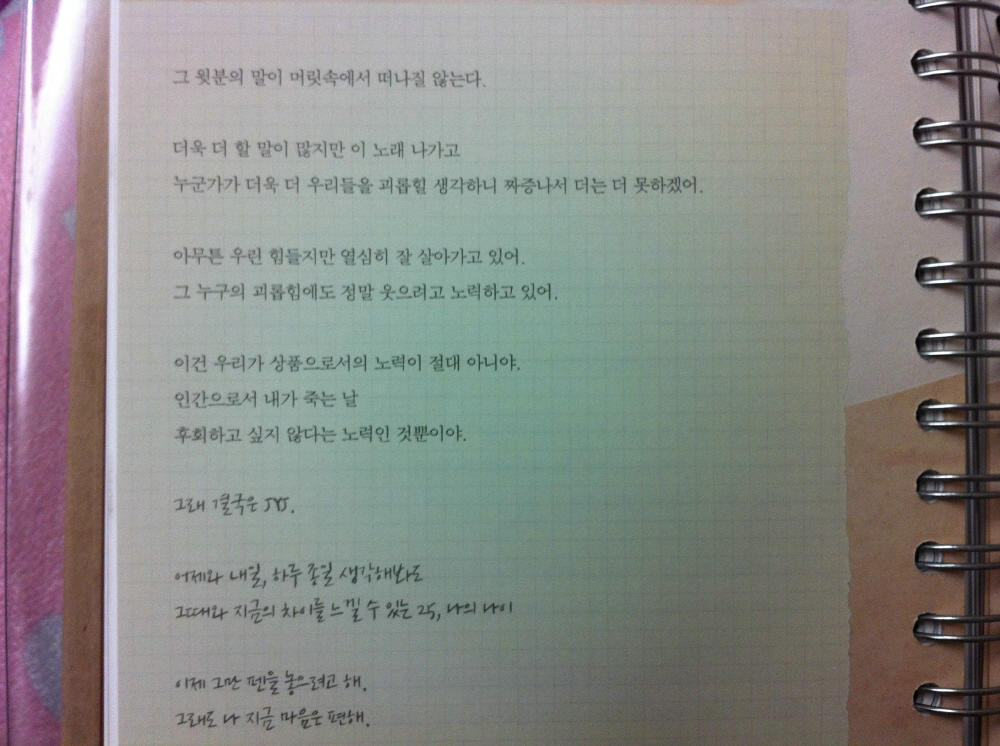 그 윗분의 말이 머릿속에서 떠나질 않는다.
더욱 더 할 말이 많지만 이 노래 나가고
누군가가 더욱 더 우리들을 괴롭힐 생각하니 짜증나서 더는 더 못하겠어.
아무튼 우린 힘들지만 열심히 잘 살아가고 있어.
그 누구의 괴롭힘에도 정말 웃으려고 노력하고 있어.
이건 우리가 상품으로서의 노력이 절대 아니야.
인간으로서 내가 죽는 날
후회하고 싶지 않다는 노력인 것뿐이야.
그래 결국은 JYJ.
어제와 내일, 하루 종일 생각해봐도
그때와 지금의 차이를 느낄 수 있는 25, 나의 나이
이제 그만 펜을 놓으려고 해.
그래도 나 지금 마음은 편해.